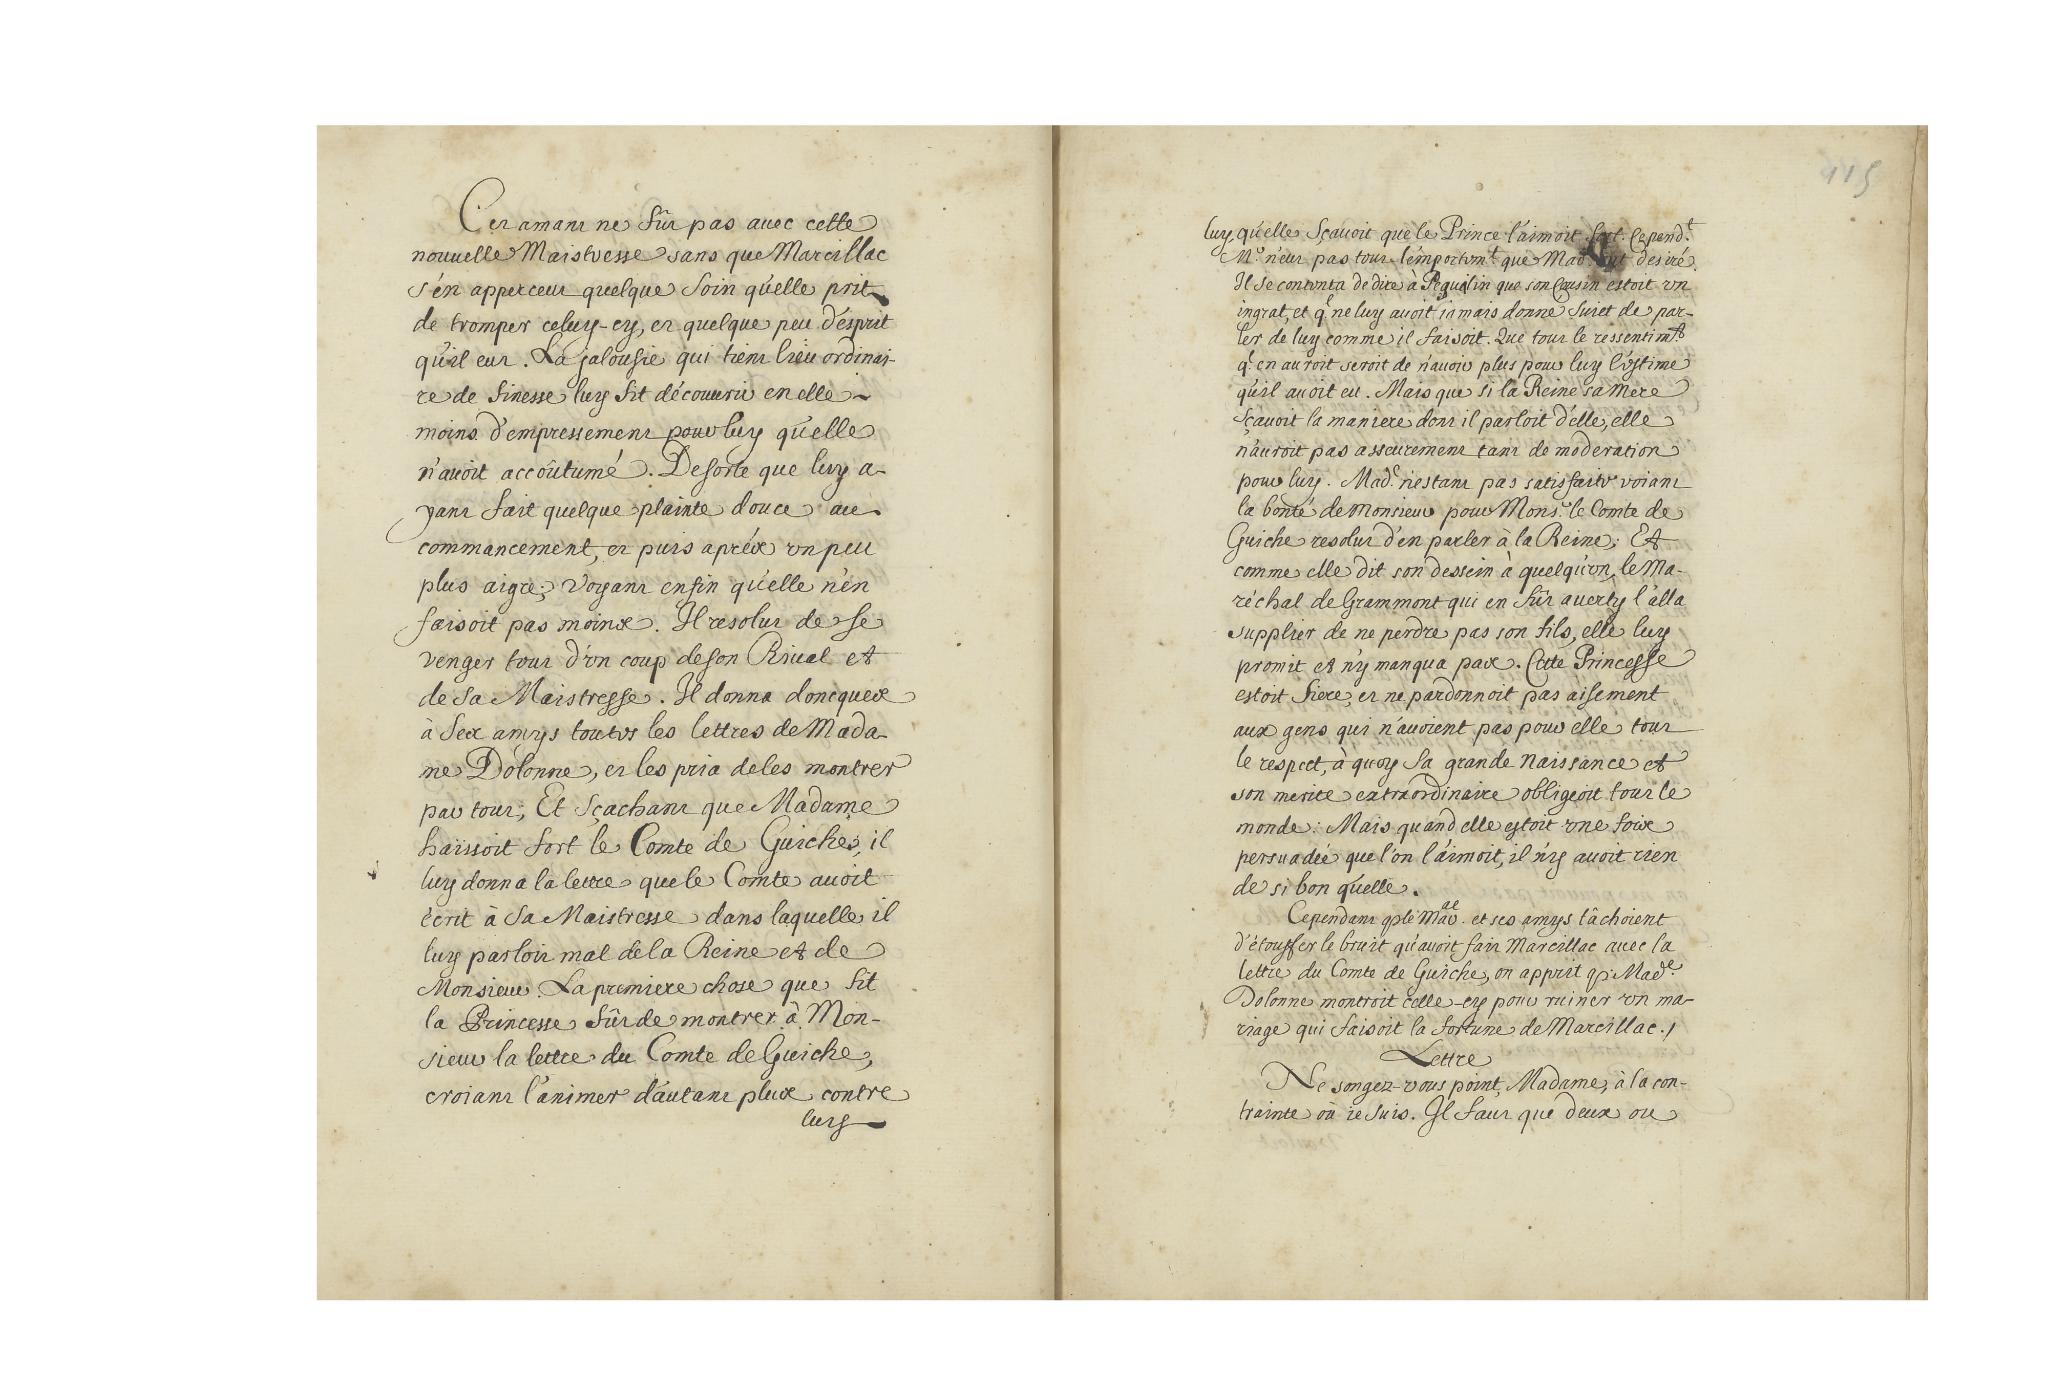 Cet amant ne fût pas auec cette
nouuelle Maistresse sans que Marcillac
s'én apperceut quelque soin qu'elle prit
de tromper celuy-cy, et quelque peu d'esprit
qu'il eut. La jalousie qui tient lieu ordinai-
re de finesse luy fit découurir en elle
moins d'empressement pour luy qu'elle
n'auoit accoûtumé. De sorte que luy a-
yant fait quelque plainte douce au
commancement, et puis apréx vn peu
plus aigre; Voyant enfin qu'elle n'en
faisoit pas moinx. Il resolut de se
venger tout d'vn coup de son Riual et
de sa Maistresse. Il donna doncquex
à sex amys toutes les lettres de Mada-
me D'olonne, et les pria de les montrer
par tout; Et sçachant que Madame
haïssoit fort le Comte de Guiche, il
luy donna la lettre que le Comte auoit
écrit à sa Maistresse dans laquelle il
luy parloit mal de la Reine et de
Monsieur. La premiere chose que fit
la Princesse fût de montrer à Mon-
sieur la lettre du Comte de Guiche,
croiant l'animer d'autant plux contre
luy
115
luy qu'elle sçauoit que le Prince l'aimoit fort. Cepend.t
M.r n'eut pas tout l'emportem.t que Mad.e eut desiré.
Il se contenta de dire à Peguilin que son Cousin estoit vn
ingrat, et q.l ne luy auoit iamais donné suiet de par-
ler de luy comme il faisoit. Que tout le ressentim.t
q.l en auroit seroit de n'auoir plus pour luy l'estime
qu'il auoit eu. Mais que si la Reine sa Mere
sçauoit la maniere dont il parloit d'elle, elle
n'auroit pas asseurement tant de moderation
pour luy. Mad.e n'estant pas satisfaite voiant
la bonté de Monsieur pour Mons.r le Comte de
Guiche resolut d'en parler à la Reine; Et
comme elle dit son dessein à quelqu'vn, le Ma-
réchal de Grammont qui en fût auerty l'alla
supplier de ne perdre pas son fils, elle luy
promit et n'y manqua pax. Cette Princesse
estoit fiere, et ne pardonnoit pas aisement
aux gens qui n'auoient pas pour elle tout
le respect, à quoy sa grande naissance et
son merite extraordinaire obligeoit tout le
monde: Mais quand elle estoit vne foix
persuadée que l'on l'aimoit, il n'y auoit rien
de si bon qu'elle.
Cependant q. le Mal. et ses amys tâchoient
d'étouffer le bruit qu'auoit fait Marcillac auec la
lettre du Comte de Guiche, on apprit q. Mad.e
Dolonne montroit celle-cy pour ruiner vn ma-
riage qui faisoit la fortune de Marcillac./
Lettre
Ne songez-vous point, Madame, à la con-
trainte où ie suis. Il faut que deux ou